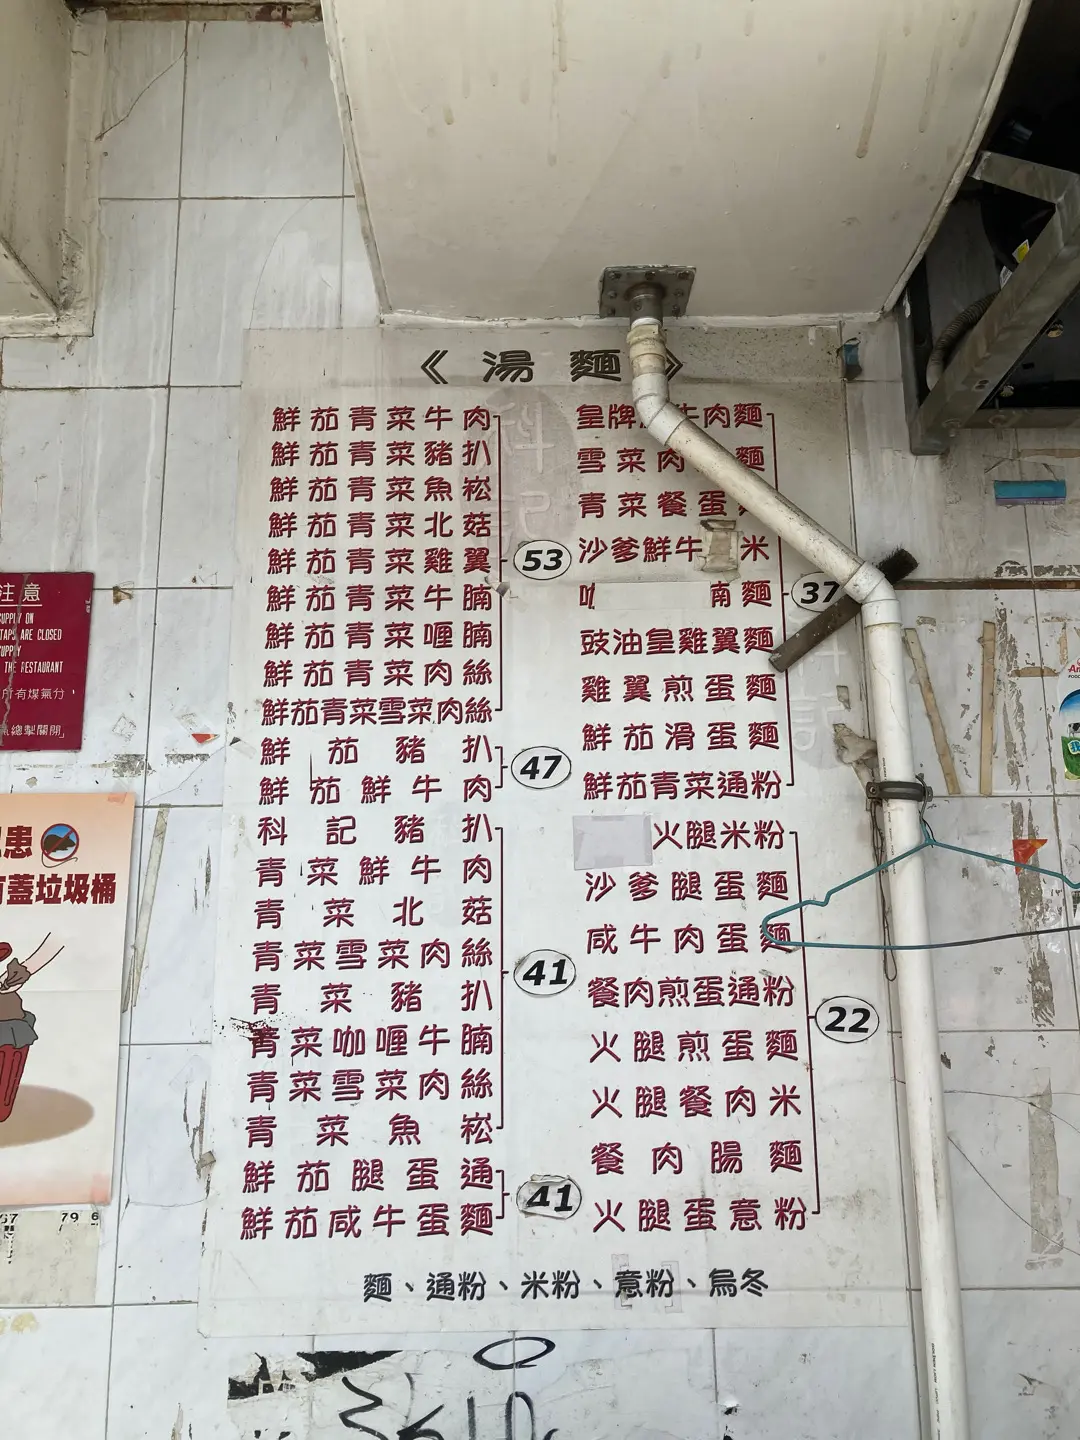 《湯麵》
鮮茄青菜牛肉
鮮茄青菜豬扒
鮮茄青菜魚崧
鮮茄青菜北菇
鮮茄青菜雞翼
鮮茄青菜牛腩
鮮茄青菜喱腩
鮮茄青菜肉絲
鮮茄青菜雪菜肉絲
53
鮮茄豬扒
鮮茄鮮牛肉
47
科記豬扒
青菜鮮牛肉
青菜北菇
青菜雪菜肉絲
青菜豬扒
青菜咖喱牛腩
青菜雪菜肉絲
青菜魚崧
41
鮮茄腿蛋通
鮮茄咸牛蛋麵
41
皇牌 牛肉麵
雪菜肉 麵
青菜餐蛋
沙爹鮮牛 米
南麵
豉油皇雞翼麵
雞翼煎蛋麵
鮮茄滑蛋麵
鮮茄青菜通粉
37
火腿米粉
沙爹腿蛋麵
咸牛肉蛋麵
餐肉煎蛋通粉
火腿煎蛋麵
火腿餐肉米
餐肉腸麵
火腿蛋意粉
22
麵、通粉、米粉、意粉、烏冬
科記
科記
注意
SUPPLY ON
TAPS ARE CLOSED
SUPPLY
THE RESTAURANT
所有煤氣分
總掣關閉」
患
蓋垃圾桶
67 79 6